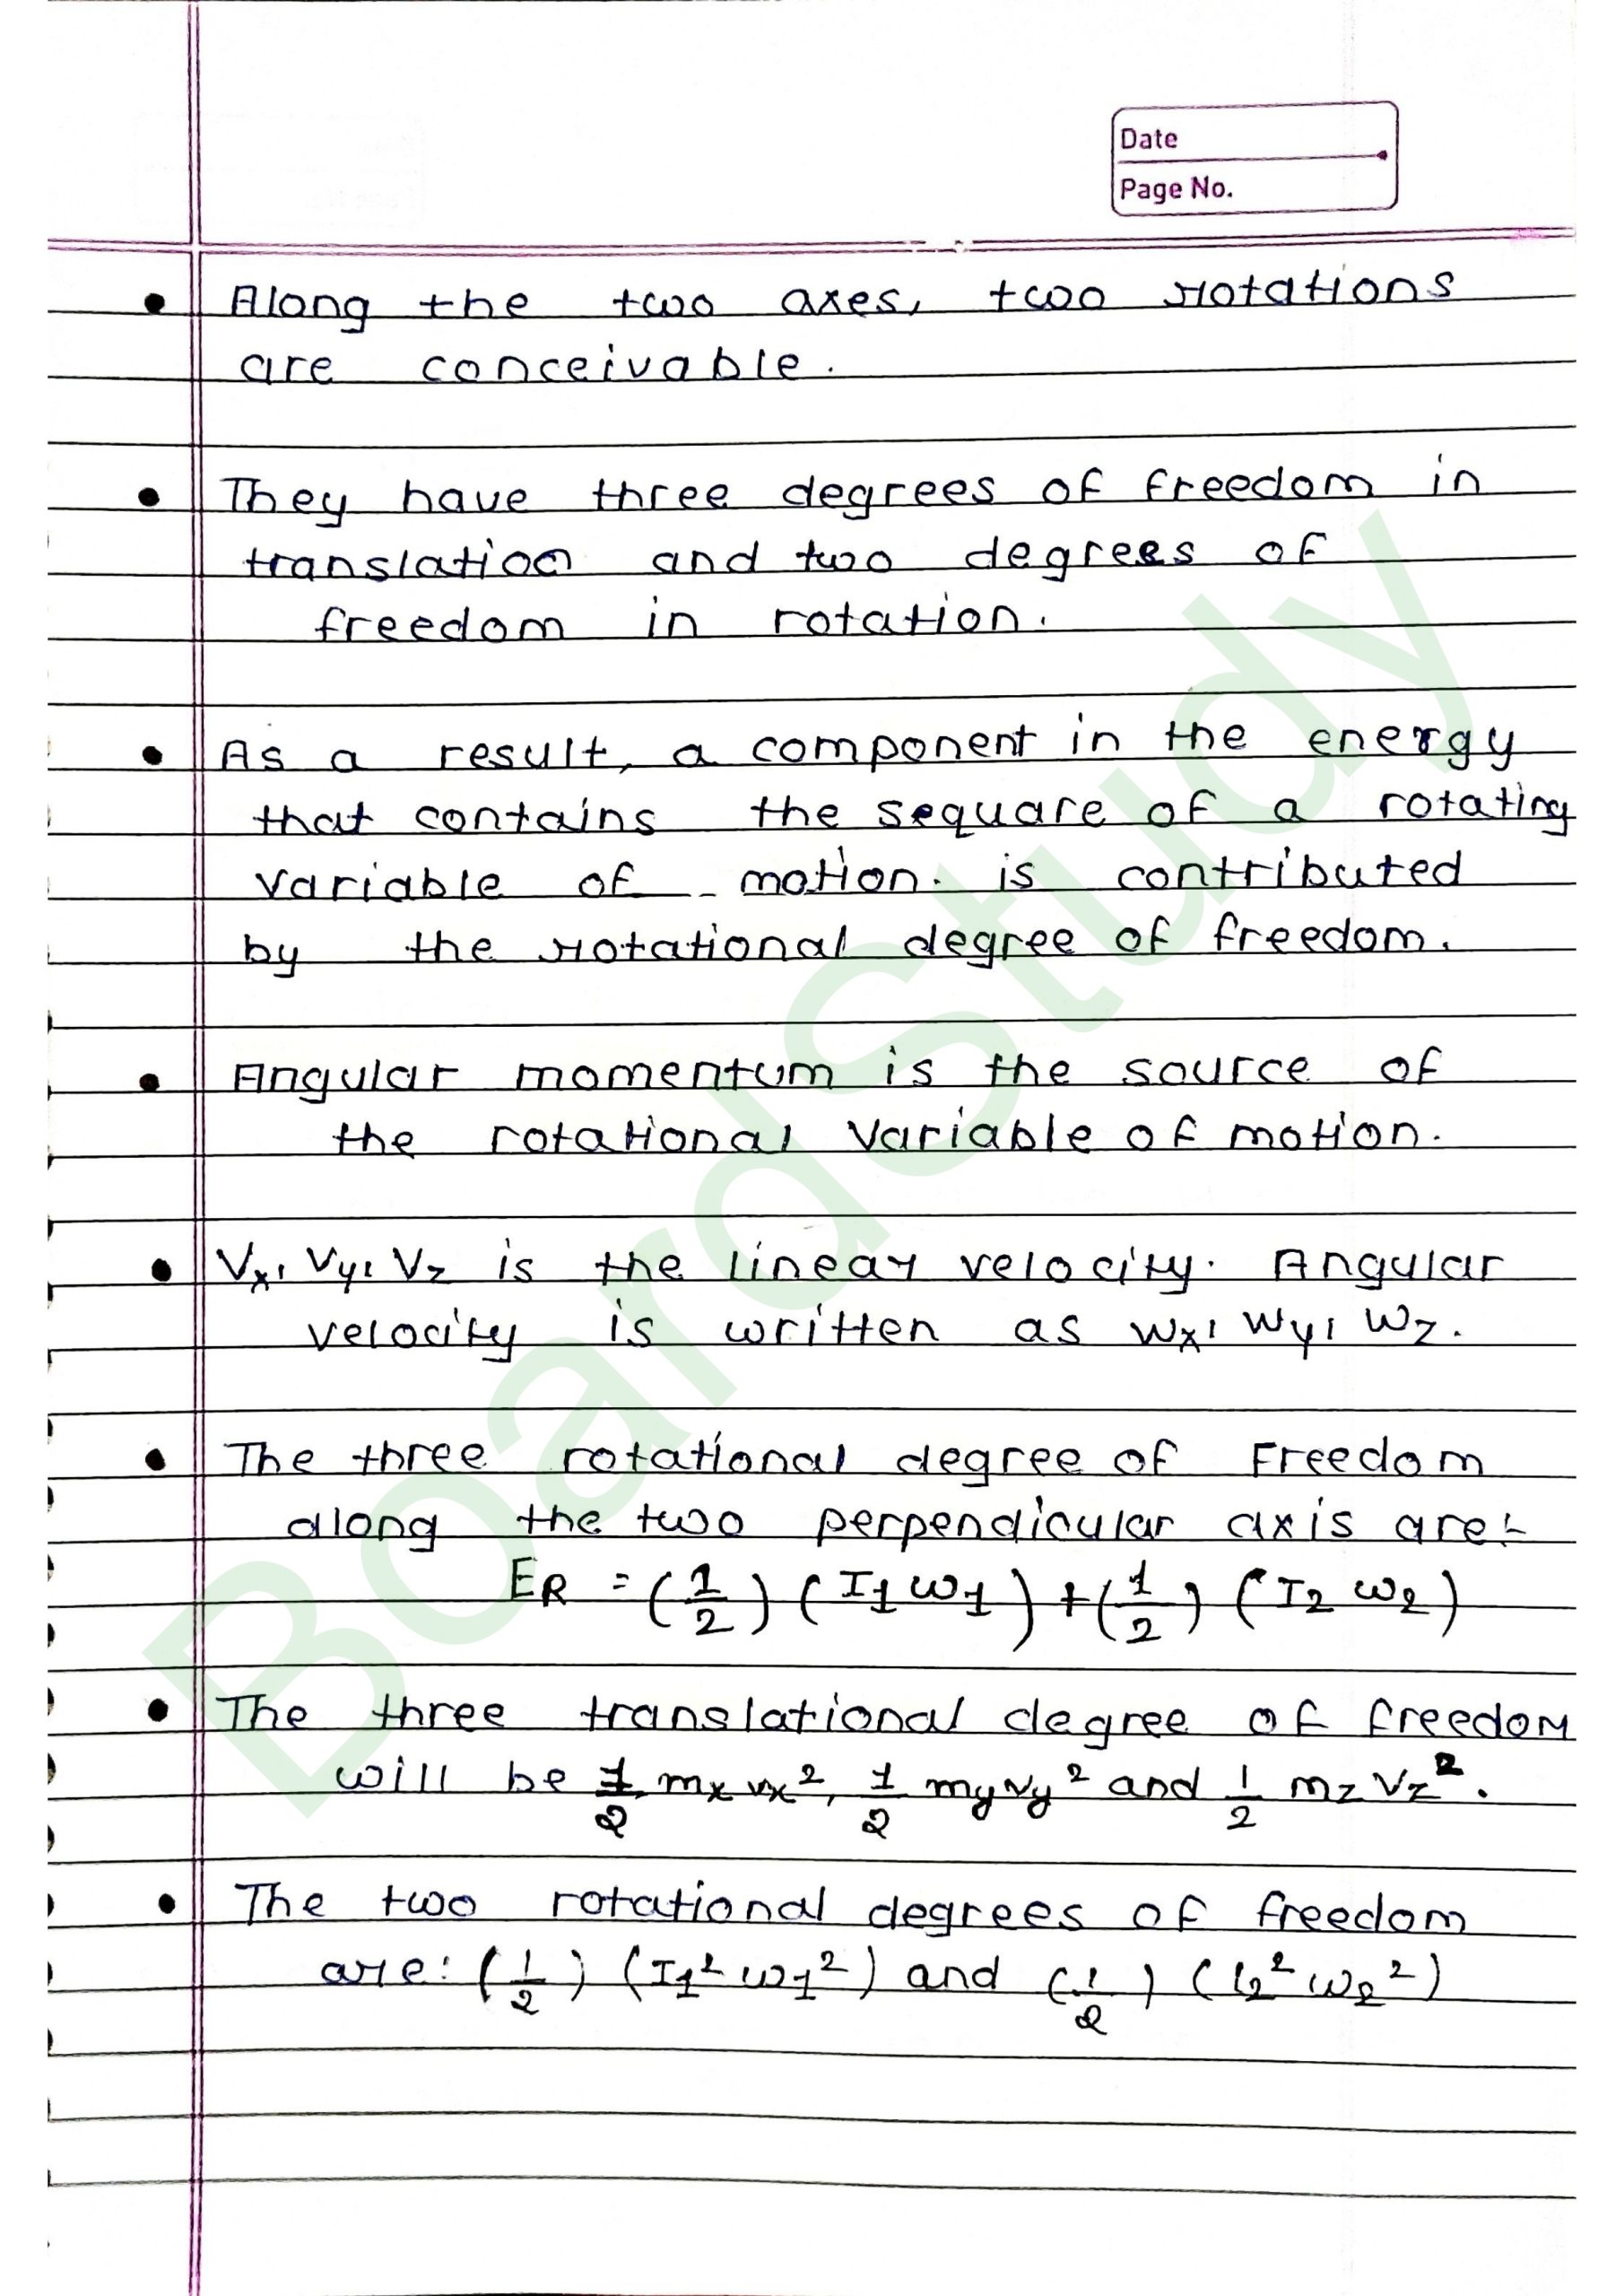 Date
Page No.
• Along the two axes, two rotations
are conceivable.
• They have three degrees of freedom in
translation and two degrees of
freedom in rotation.
• As a result, a component in the energy
that contains the sequare of a rotating
variable of motion. is contributed
by the rotational degree of freedom.
• Angular momentum is the source of
the rotational variable of motion.
• Vx, Vy, Vz is the linear velocity. Angular
velocity is written as wx, wy, wz.
• The three rotational degree of Freedom
along the two perpendicular axis are:-
ER = (1/2) (I1 ω1) + (1/2) (I2 ω2)
• The three translational degree of freedom
will be 1/2 mx vx², 1/2 my vy² and 1/2 mz vz².
• The two rotational degrees of freedom
are: (1/2) (I1² ω1²) and (1/2) (I2² ω2²)
BoardStudy